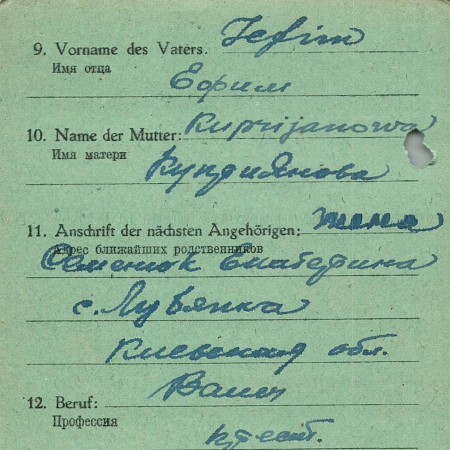 9. Vorname des Vaters. Jefim
Имя отца
Ефим
10. Name der Mutter: Kuprijanowa
Имя матери
Куприянова
11. Anschrift der nächsten Angehörigen: жена
Адрес ближайших родственников
Семенюк Екатерина
с. Лубянка
Киевская обл.
12. Beruf: Bauer
Профессия
крест.